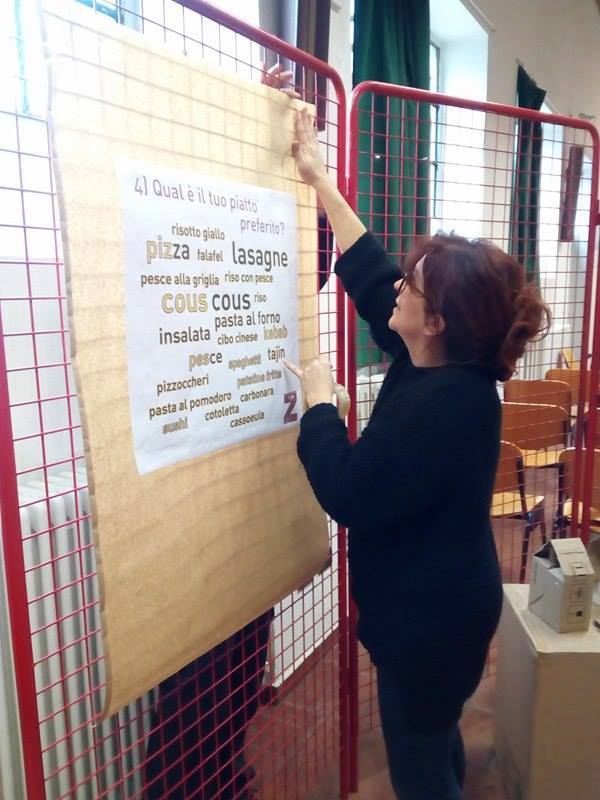 4) Qual è il tuo piatto
preferito?
risotto giallo
pizza falafel lasagne
pesce alla griglia riso con pesce
cous cous riso
pasta al forno
insalata cibo cinese kebab
pesce spaghetti tajin
pizzoccheri patatine fritte
pasta al pomodoro carbonara
sushi cotoletta cassoeula
2